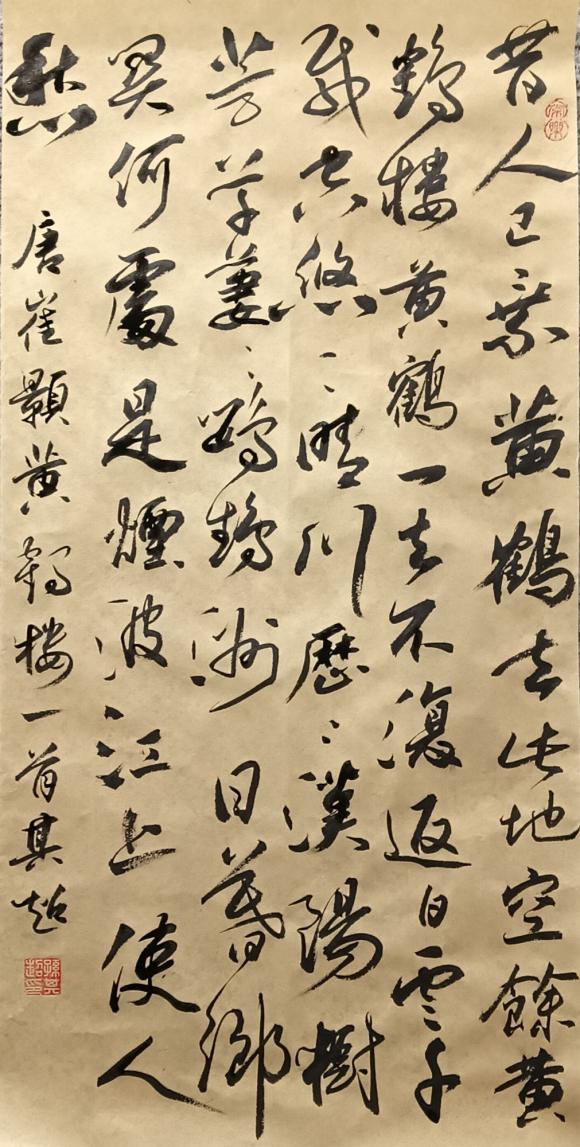 昔人已乘黃鶴去此地空餘黃
鶴樓黃鶴一去不復返白雲千
載空悠〻晴川歷〻漢陽樹
芳草萋〻鸚鵡洲日暮鄉
關何處是煙波江上使人
愁
唐崔顥黃鶴樓一首其超
孫其超印